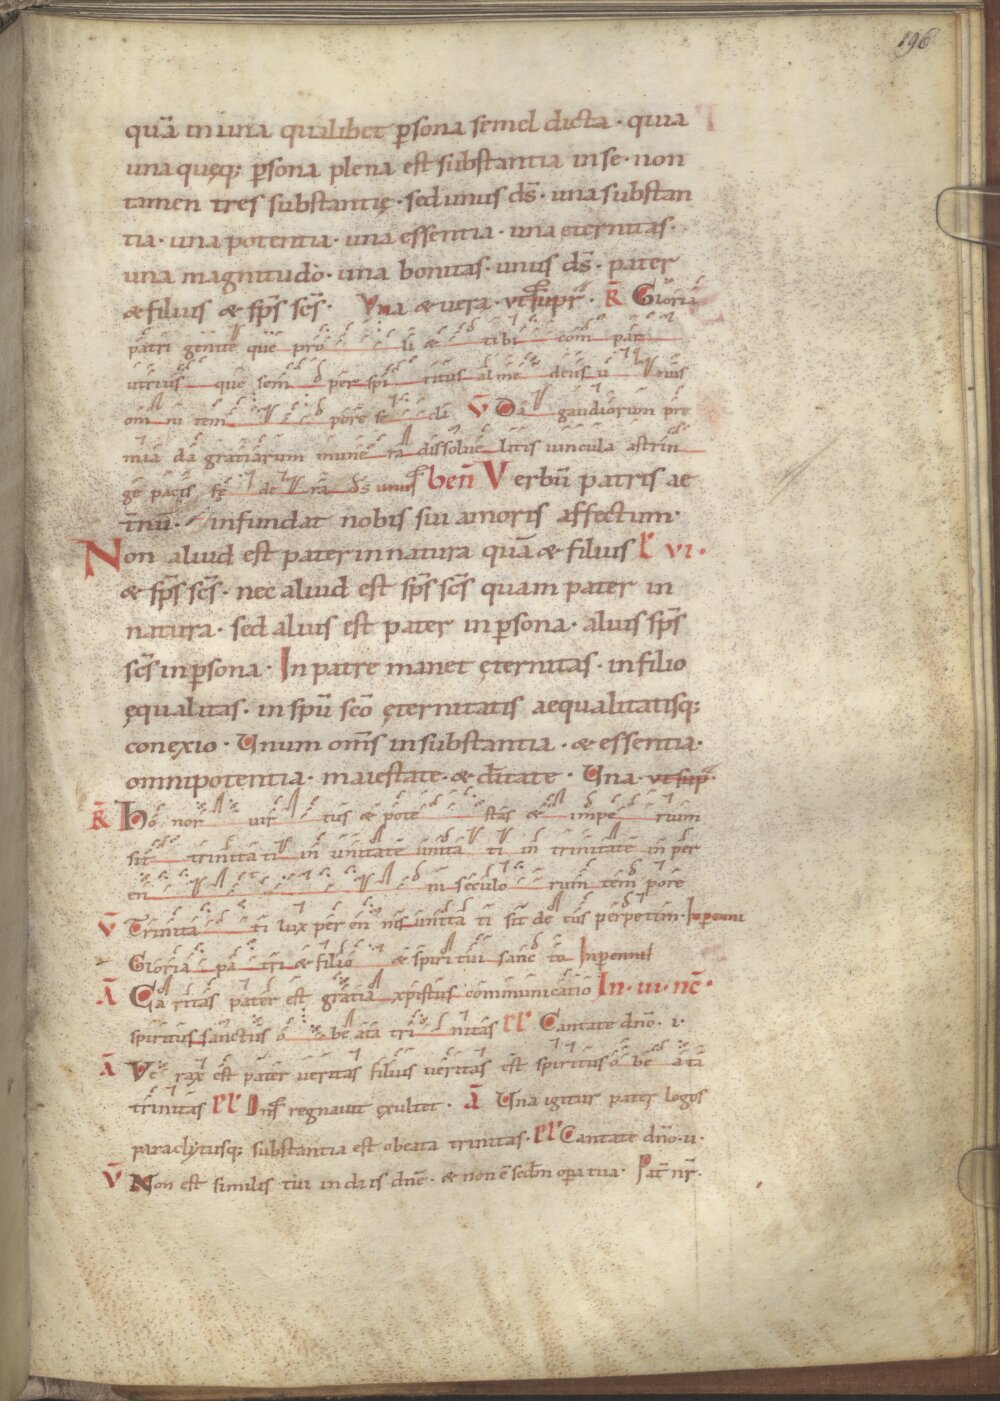 196
quā in una qualibet p̱sona semel dicta · quia
una quęq; p̱sona plena est substantia in se · non
tamen tres substantię · sed unus d̄s · una substan
tia · una potentia · una essentia · una ęternitas ·
una magnitudo · una bonitas · unus d̄s · pater
& filius & sp̄s sc̄s · Una & uera · ut supr̄ · R̄ Gloria
patri genite que pro li & tibi com par
utrius que sem per spi ritus alme deus u nus
om ni tem pore se cli V̄ Da gaudiorum pre
mia da gratiarum munera dissolue litis uincula astrin
ge pacis fę de ra d̄s unus ben̄ Verbū patris ae
t̄nū · infundat nobis sui amoris affectum ·
Non aliud est pater in natura quā & filius L̄ VI ·
& sp̄s sc̄s · nec aliud est sp̄s sc̄s quam pater in
natura · sed alius est pater in p̱sona · alius sp̄s
sc̄s in p̱sona · In patre manet ęternitas · in filio
ęqualitas · in spū scō ęternitatis aequalitatisq;
conexio · Unum om̄s in substantia · & essentia ·
omnipotentia · maiestate · & d̄itate · Una · ut sup̄ ·
R̄ Ho nor uir tus & pote stas & impe rium
sit trinitati in unitate unita ti in trinitate in per
en ni seculo rum tem pore
V̄ Trinita ti lux per en nis unita ti sit de cus perpetim · In perenni
Gloria pa tri & filio & spiri tui sanc to In perenni
Ā Ca ritas pater est gratia xpistus communicatio In · III · nc̄ ·
spiritus sanctus o be ata tri nitas Cantate dn̄o · I ·
Ā Ve rax est pater ueritas filius ueritas est spiritus o be ata
trinitas Dn̄s regnauit exultet · Ā Una igitur pater logos
paraclytusq; substantia est o beata trinitas · Cantate dn̄o · II ·
V̄ Non est similis tui in diis dn̄e · & non ē sedm̄ opa tua · Pat̄ nr̄ ·